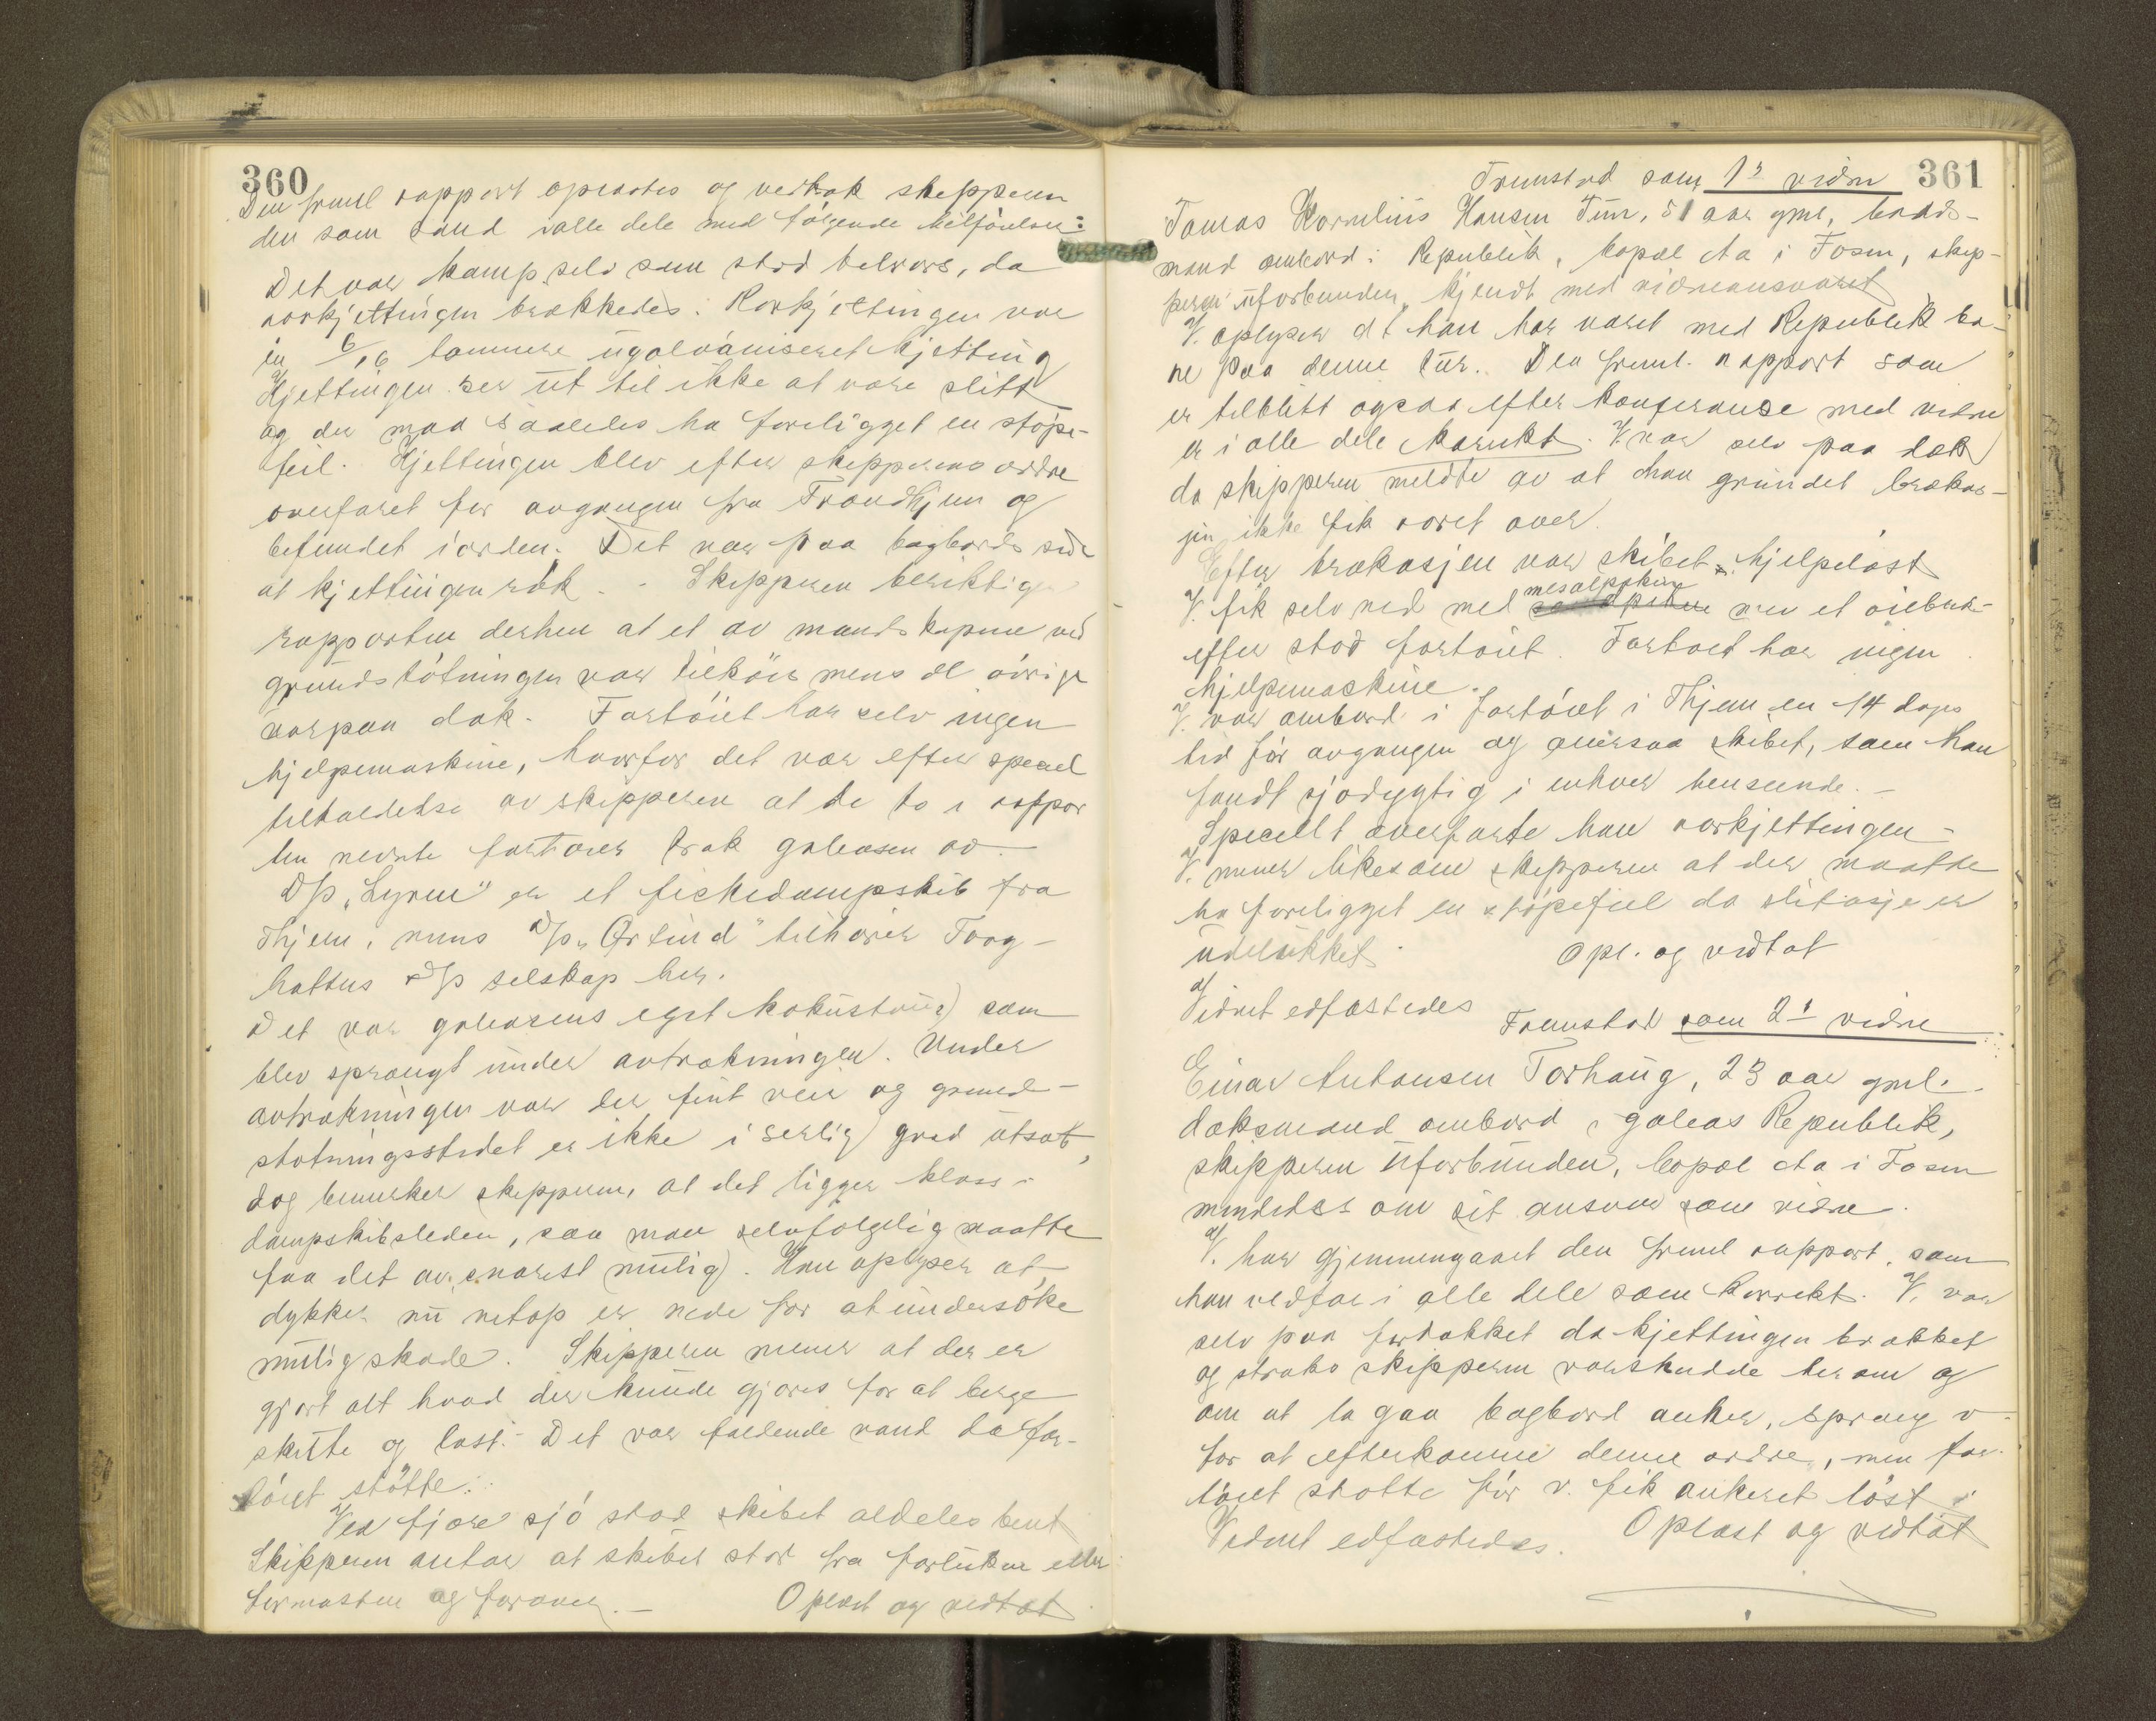 360
Den freml rapport oplæstes og vedtok skipperen
den som sand i alle dele med følgende tilføielser:
Det var komp. selv som stod tilrors, da
rorkjettingen brækkedes. Rorkjettingen var
en 6/16 tommers ugalvaniseret kjetting
Kjettingen ser ut til ikke at være slitt
og der maa saaledes ha foreligget en støpe-
feil. Kjettingen blev efter skipperens ordre
overfaret før avgangen fra Trondhjem og
befundet i orden. Det var paa bagbords side
at kjettingen røk. Skipperen beriktiger
rapporten derhen at et av mandskapene ved
grundstøtningen var tilkøis mens de øvrige
var paa dæk. Fartøiet har selv ingen
hjelpemaskine, hvorfor det var efter speciel
tilholdelse av skipperen at de to i rappor
ten nevnte fartøier trak galeasen av.
D/s "Lyren" er et fiskedampskib fra
Thjem, mens D/s "Ørsund" tilhører Torg-
hattens D/s selskap her.
Det var galeasens eget kokustaug som
blev sprængt under avtrækningen. Under
avtrækningen var der fint veir og grund-
støtningsstedet er ikke i serlig grad utsat,
dog bemerker skipperen, at det ligger kloss i
dampskibsleden, saa man selvfølgelig maatte
faa det av snarest mulig. Han oplyser at
dykker nu netop er nede for at undersøke
mulig skade. Skipperen mener at der er
gjort alt hvad der kunde gjøres for at berge
skute og last. Det var faldende vand da far-
tøiet støtte.
Ved fjære sjø stod skibet aldeles bent
Skipperen antar at skibet stod fra forluken eller
formasten og forover. Oplæst og vedtat
361
Fremstod som 1s vidne
Tomas Kornelius Hansen Tun, 51 aar gml, baads-
mand ombord i Republik, bopæl Aa i Fosen, skip-
peren uforbunden, kjendt med vidneansvaret
V. oplyser at han har været med Republik ba-
re paa denne tur. Den freml. rapport som
er tilblitt ogsaa efter konferanse med vidne
er i alle dele korrekt. V. var selv paa dæk
da skipperen meldte av at han grundet brækas-
jen ikke fik roret over.
Efter brækasjen var skibet hjelpeløst
V. fik selv ned mesalpiken men et øieblik
efter stod fartøiet. Fartøiet har ingen
hjelpemaskine.
V. var ombord i fartøiet i Thjem en 14 dages
tid før avgangen og oversaa skibet, som han
fandt sjødygtig i enhver henseende.
Specielt overfarte han rorkjettingen
V. mener likesom skipperen at der maatte
ha foreligget en støpefeil da slitasje er
udelukket. Opl. og vedtat
Vidnet edfæstedes
Fremstod som 2s vidne
Einar Antonsen Torhaug, 23 aar gml.
dæksmand ombord i galeas Republik,
skipperen uforbunden, bopæl Aa i Fosen
mindedes om sit ansvar som vidne.
V. har gjennemgaaet den freml rapport som
han vedtar i alle dele som korrekt. V. var
selv paa fordækket da kjettingen brækket
og straks skipperen varskudde herom og
om at la gaa bagbord anker, sprang v.
for at efterkomme denne ordre, men far-
tøiet støtte før v. fik ankeret løst
Vidnet edfæstedes. Oplæst og vedtat